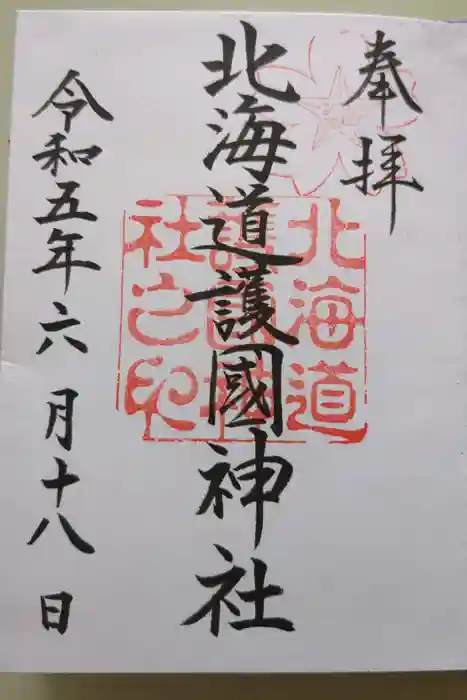 奉拝
北海道護國神社
令和五年六月十八日
北海道
護國神
社之印